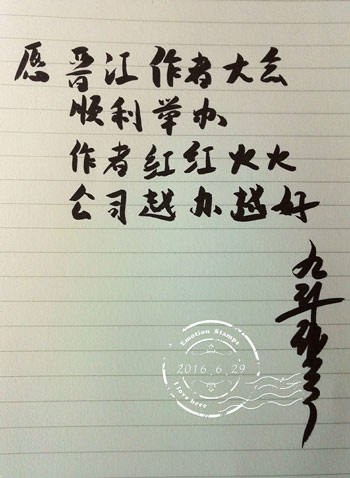 愿 晋江作者大会
顺利举办
作者红红火火
公司越办越好
九斗
Emotion Stamps
2016.6.29
I love here